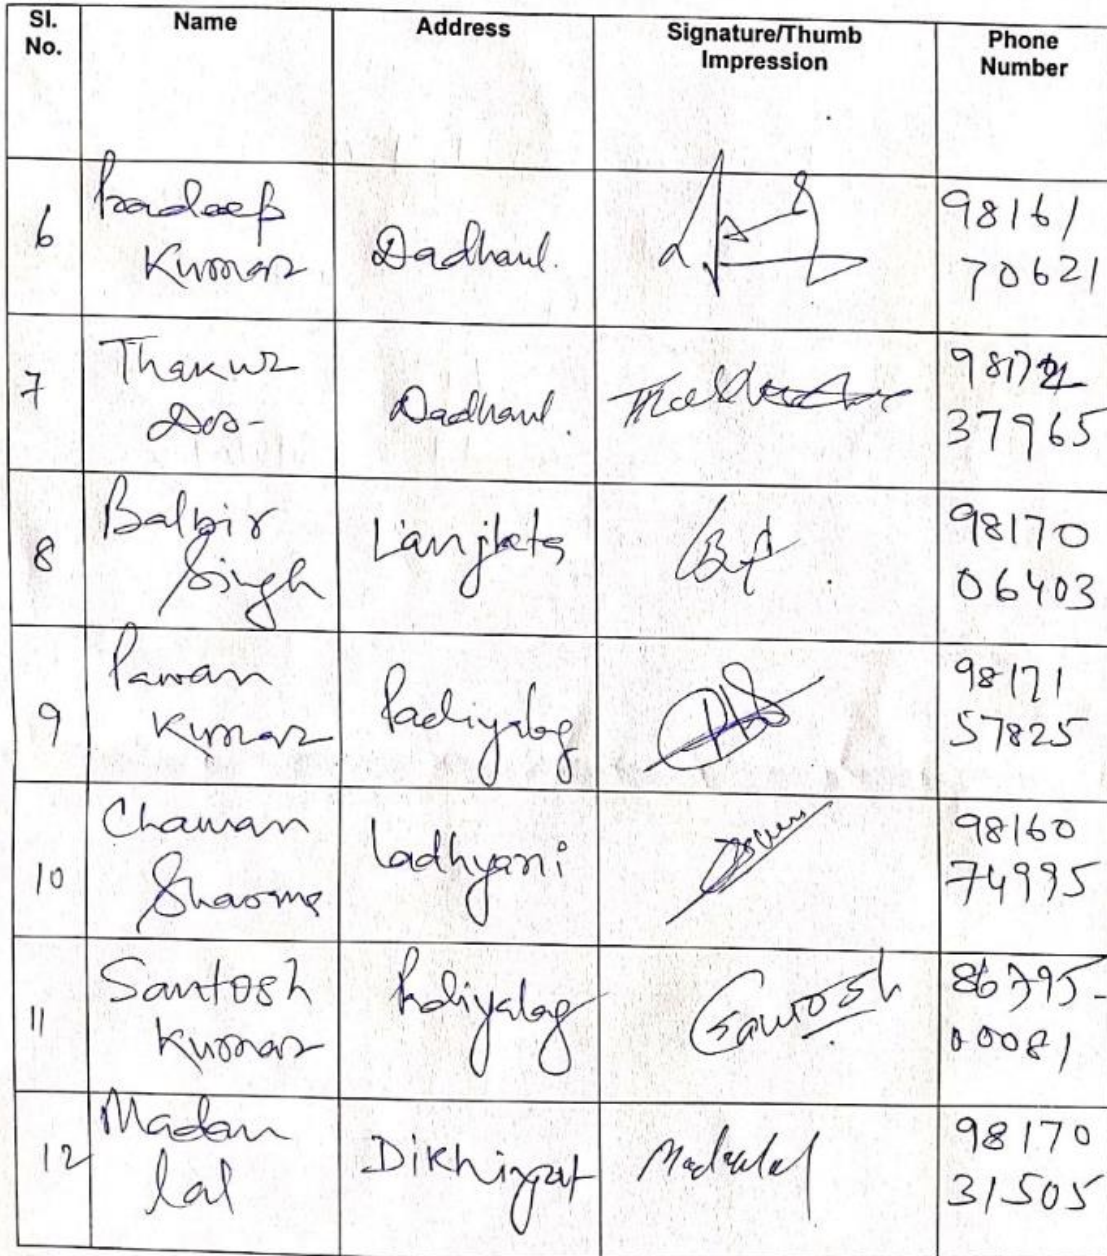 Sl. No. Name Address Signature/Thumb Impression Phone Number
6 Pradeep Kumar Dadhaul. 98161 70621
7 Thakur Das- Dadhaul. 37965
8 Balbir Singh 98170 06403
9 Pawan Kumar Padiyalag 98171 57825
10 Chaman Sharma Ladhyani 98160 74995
11 Santosh Kumar Padiyalag Santosh 86795- 00081
12 Madan lal Madanlal 98170 31505